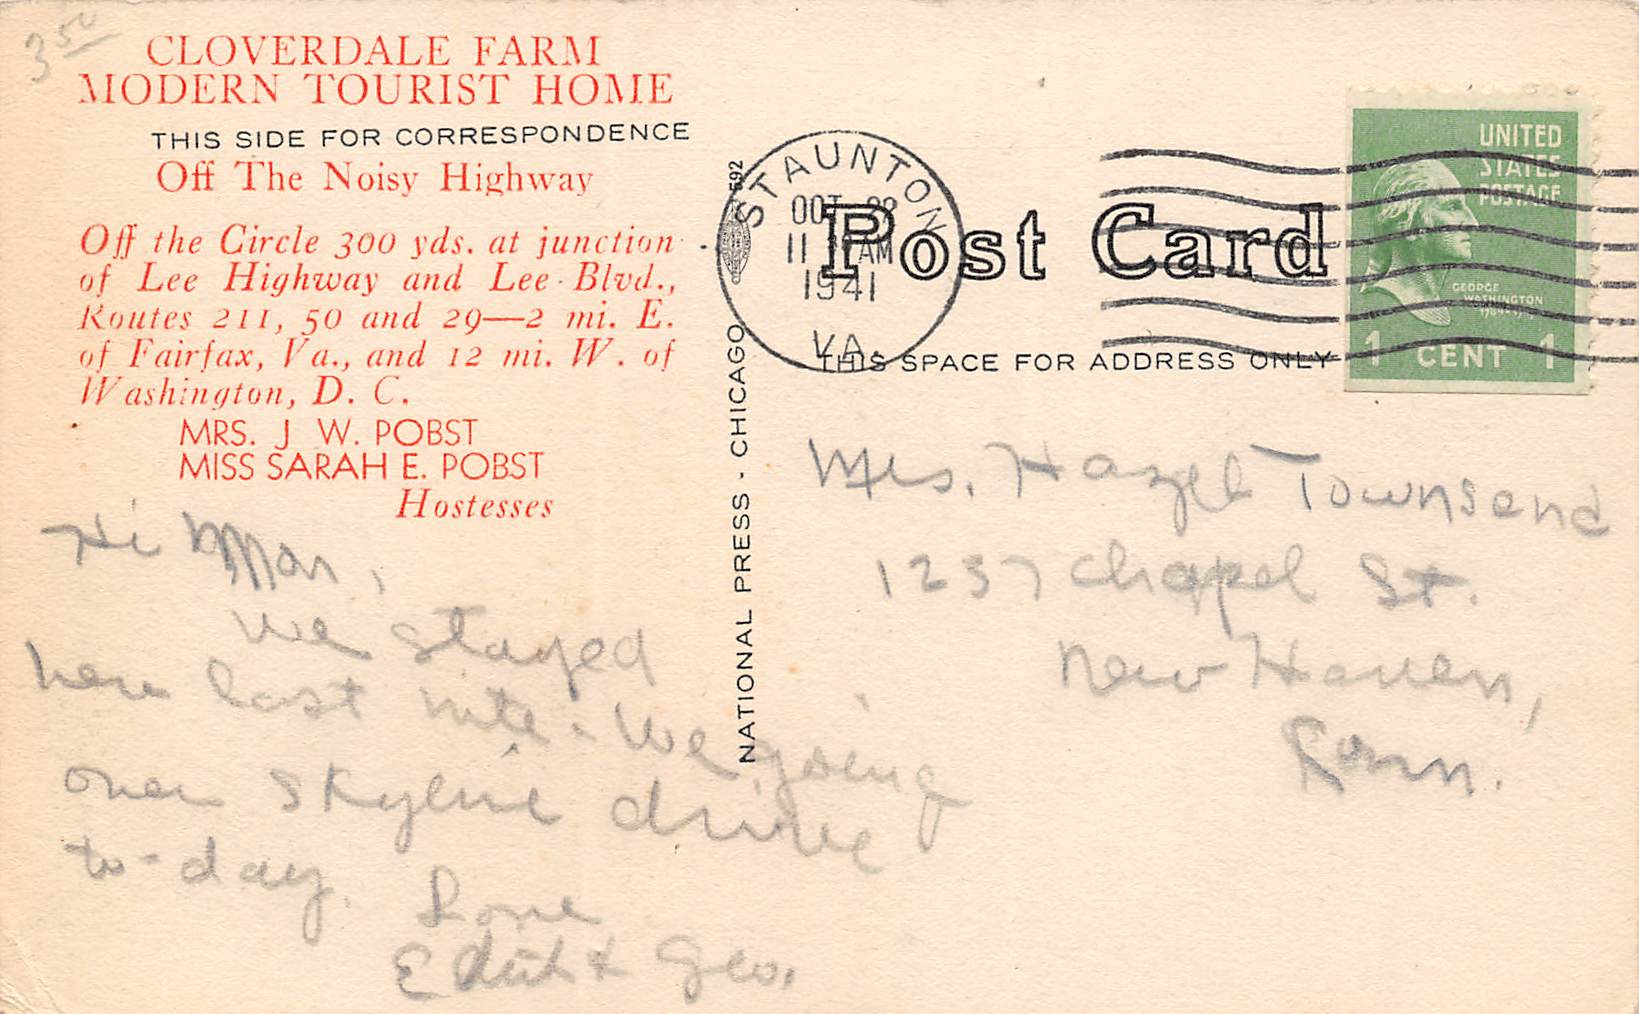 3 50
CLOVERDALE FARM
MODERN TOURIST HOME
THIS SIDE FOR CORRESPONDENCE
Off The Noisy Highway
Off the Circle 300 yds. at junction
of Lee Highway and Lee Blvd.,
Routes 211, 50 and 29—2 mi. E.
of Fairfax, Va., and 12 mi. W. of
Washington, D. C.
MRS. J W. POBST
MISS SARAH E. POBST
Hostesses
Hi Mom,
We stayed
here last nite. We going
over Skyline drive
to-day.
Love
Edith & Geo.
592
NATIONAL PRESS - CHICAGO
STAUNTON
OCT
11 AM
1941
VA.
Post Card
THIS SPACE FOR ADDRESS ONLY
UNITED
STATES
POSTAGE
GEORGE
WASHINGTON
1 CENT 1
Mrs. Hazel Townsend
1237 Chapel St.
New Haven,
Conn.